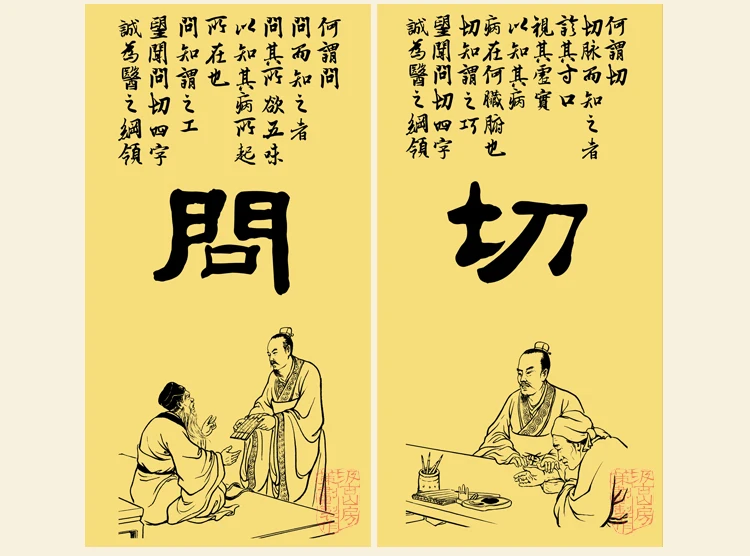 何謂問
問而知之者
問其所欲五味
以知其病所起
所在也
問知謂之工
望聞問切四字
誠為醫之綱領
問
何謂切
切脉而知之者
診其寸口
視其虛實
以知其病
病在何臟腑也
切知謂之巧
望聞問切四字
誠為醫之綱領
切